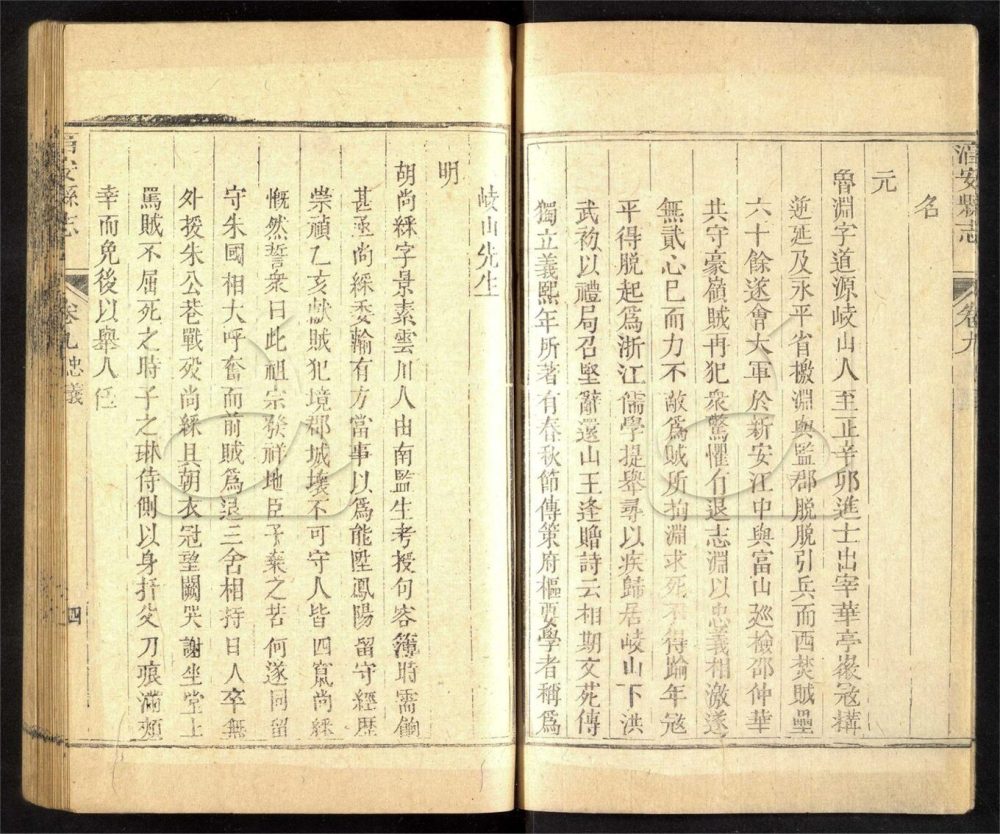 淳安縣志
卷九
名
元
魯淵字道源岐山人至正辛卯進士出宰華亭嚴㓂搆
逆延及永平省檄淵與監郡脫脫引兵而西焚賊壘
六十餘遂會大軍於新安江中與富山廵檢邵仲華
共守豪嶺賊冉犯衆驚懼有退志淵以忠義相激遂
無貳心已而力不敵爲賊所拘淵求死不得踰年㓂
平得脫起爲浙江儒學提舉尋以疾歸居岐山下洪
武初以禮局召堅辭還山王逢贈詩云相期文苑傳
獨立義熙年所著有春秋節傳策府樞要學者稱爲
岐山先生
明
胡尚綵字景素雲川人由南監生考授句容簿時需餉
甚亟尚綵委輸有方當事以爲能陞鳳陽留守經歷
崇禎乙亥獻賊犯境郡城壞不可守人皆四竄尚綵
慨然誓衆曰此祖宗發祥地臣子棄之苦何遂同留
守朱國相大呼奮而前賊爲退三舍相持日人卒無
外援朱公巷戰歿尚綵具朝衣冠望闕哭謝坐堂上
罵賊不屈死之時子之琳侍側以身扞父刀痕滿頰
幸而免後以舉人任
淳安縣志
卷九 忠義
四